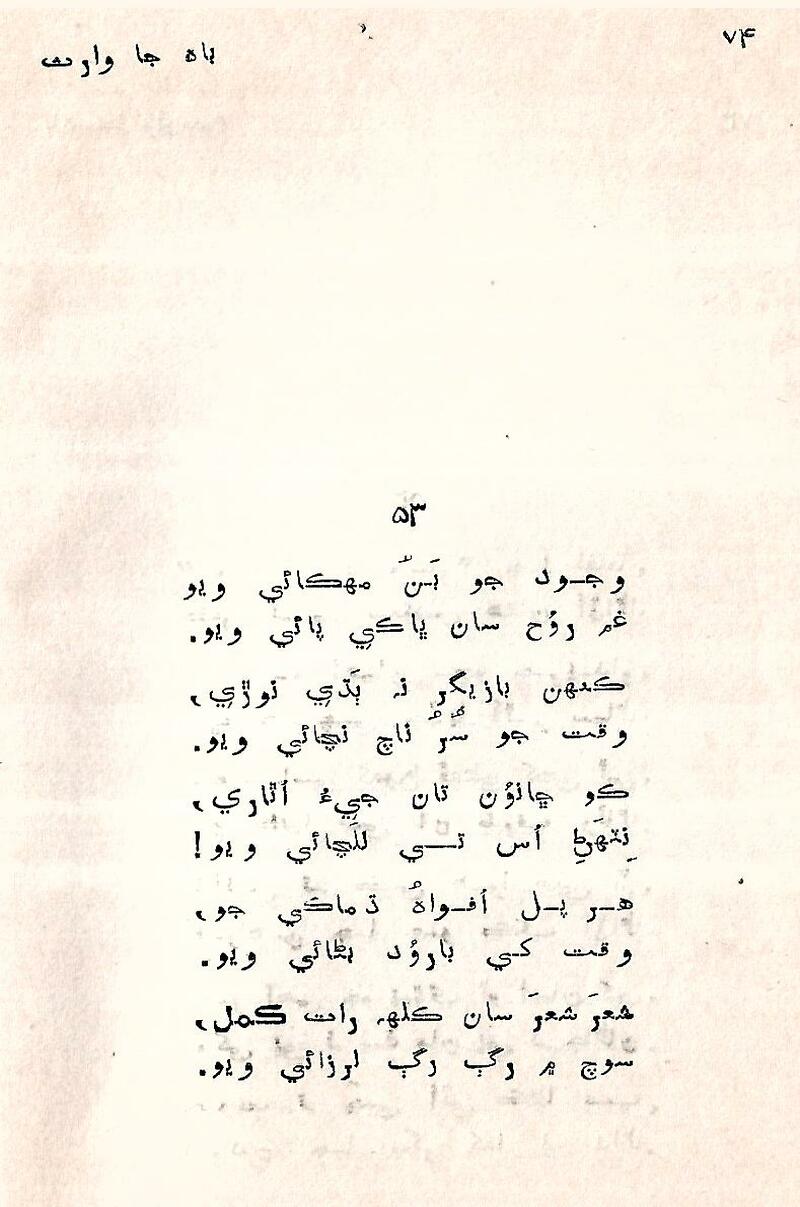 ۷۴
باھ جا وارث
۵۳
وجود جو بَنُ مهڪائي ويو
غم رُوح سان ڀاڪي پائي ويو.
ڪنهن بازيگر نہ ٻَڌي نوڙي،
وقت جو سُرُ ناچ نچائي ويو.
ڪو ڇانوُن تان جيءُ اُٿاري،
اُس تي للچائي ويو!
هر پل افواھُ ڌماڪي جو،
وقت کي بارُود بڻائي ويو.
شعرَ شعرَ سان ڪلهہ رات ڪمل،
سوچ ۾ رڳ رڳ لرزائي ويو.